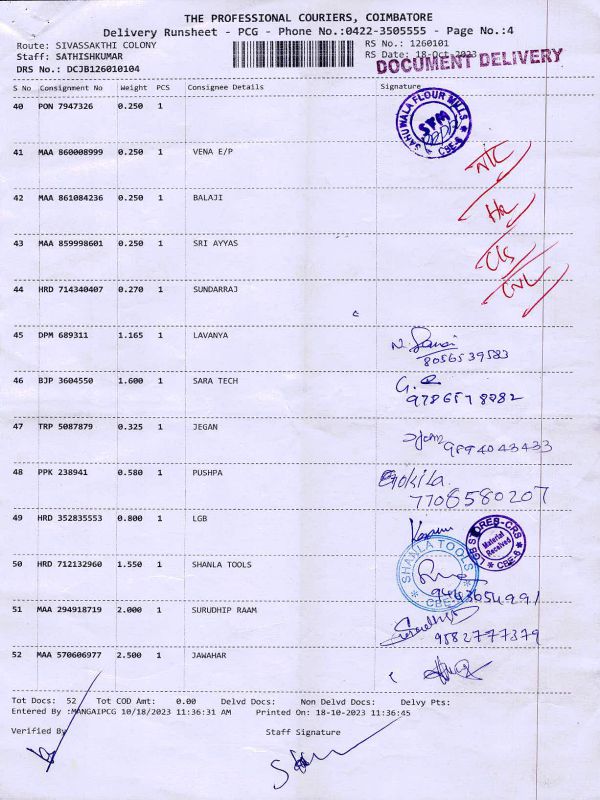 THE PROFESSIONAL COURIERS, COIMBATORE
Delivery Runsheet - PCG - Phone No.:0422-3505555 - Page No.:4
Route: SIVASSAKTHI COLONY RS No.: 1260101
Staff: SATHISHKUMAR RS Date: 18-Oct-2023
DOCUMENT DELIVERY
DRS No.: DCJB126010104
S No Consignment No Weight PCS Consignee Details Signature
40 PON 7947326 0.250 1
SAHUWALA FLOUR MILLS CBE-6
41 MAA 860008999 0.250 1 VENA E/P
42 MAA 861084236 0.250 1 BALAJI
43 MAA 859998601 0.250 1 SRI AYYAS
44 HRD 714340407 0.270 1 SUNDARRAJ
45 DPM 689311 1.165 1 LAVANYA
8056539583
46 BJP 3604550 1.600 1 SARA TECH
9786578882
47 TRP 5087879 0.325 1 JEGAN
9894043433
48 PPK 238941 0.580 1 PUSHPA
Gokila.
7708580207
49 HRD 352835553 0.800 1 LGB
LGB STORES-CRS Material Received CBE-6
50 HRD 712132960 1.550 1 SHANLA TOOLS
SHANLA TOOLS CBE-6
9443654991
51 MAA 294918719 2.000 1 SURUDHIP RAAM
9882777379
52 MAA 570606977 2.500 1 JAWAHAR
Tot Docs: 52 Tot COD Amt: 0.00 Delvd Docs: Non Delvd Docs: Delvy Pts:
Entered By :MANGAIPCG 10/18/2023 11:36:31 AM Printed On: 18-10-2023 11:36:45
Verified By Staff Signature